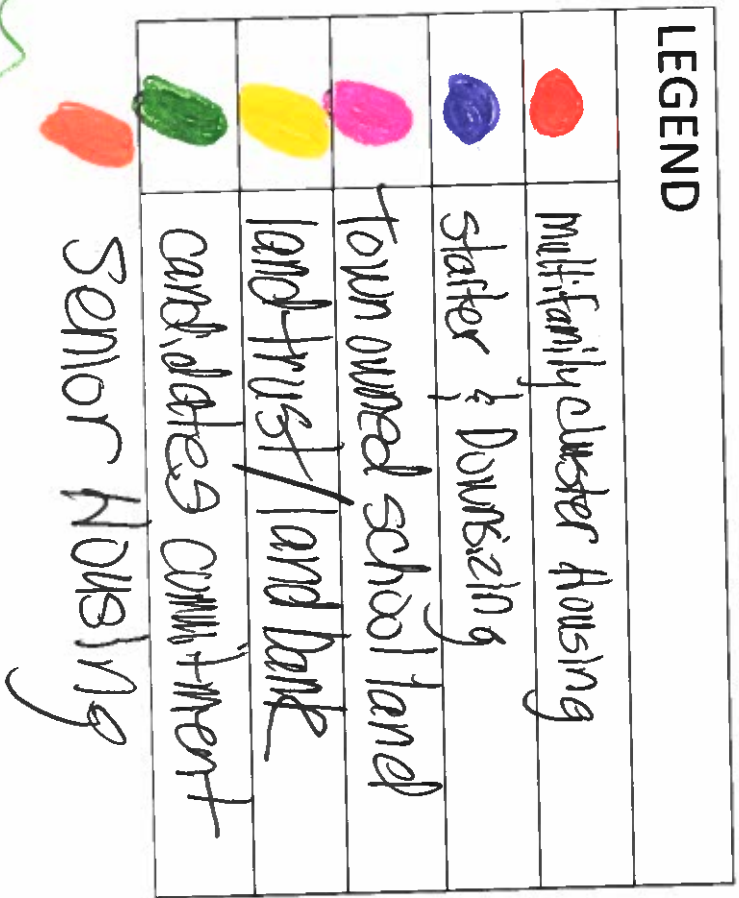 LEGEND
Multifamily cluster Housing
starter & Downsizing
town owned school land
land trust/land bank
candidates commitment
Senior Housing